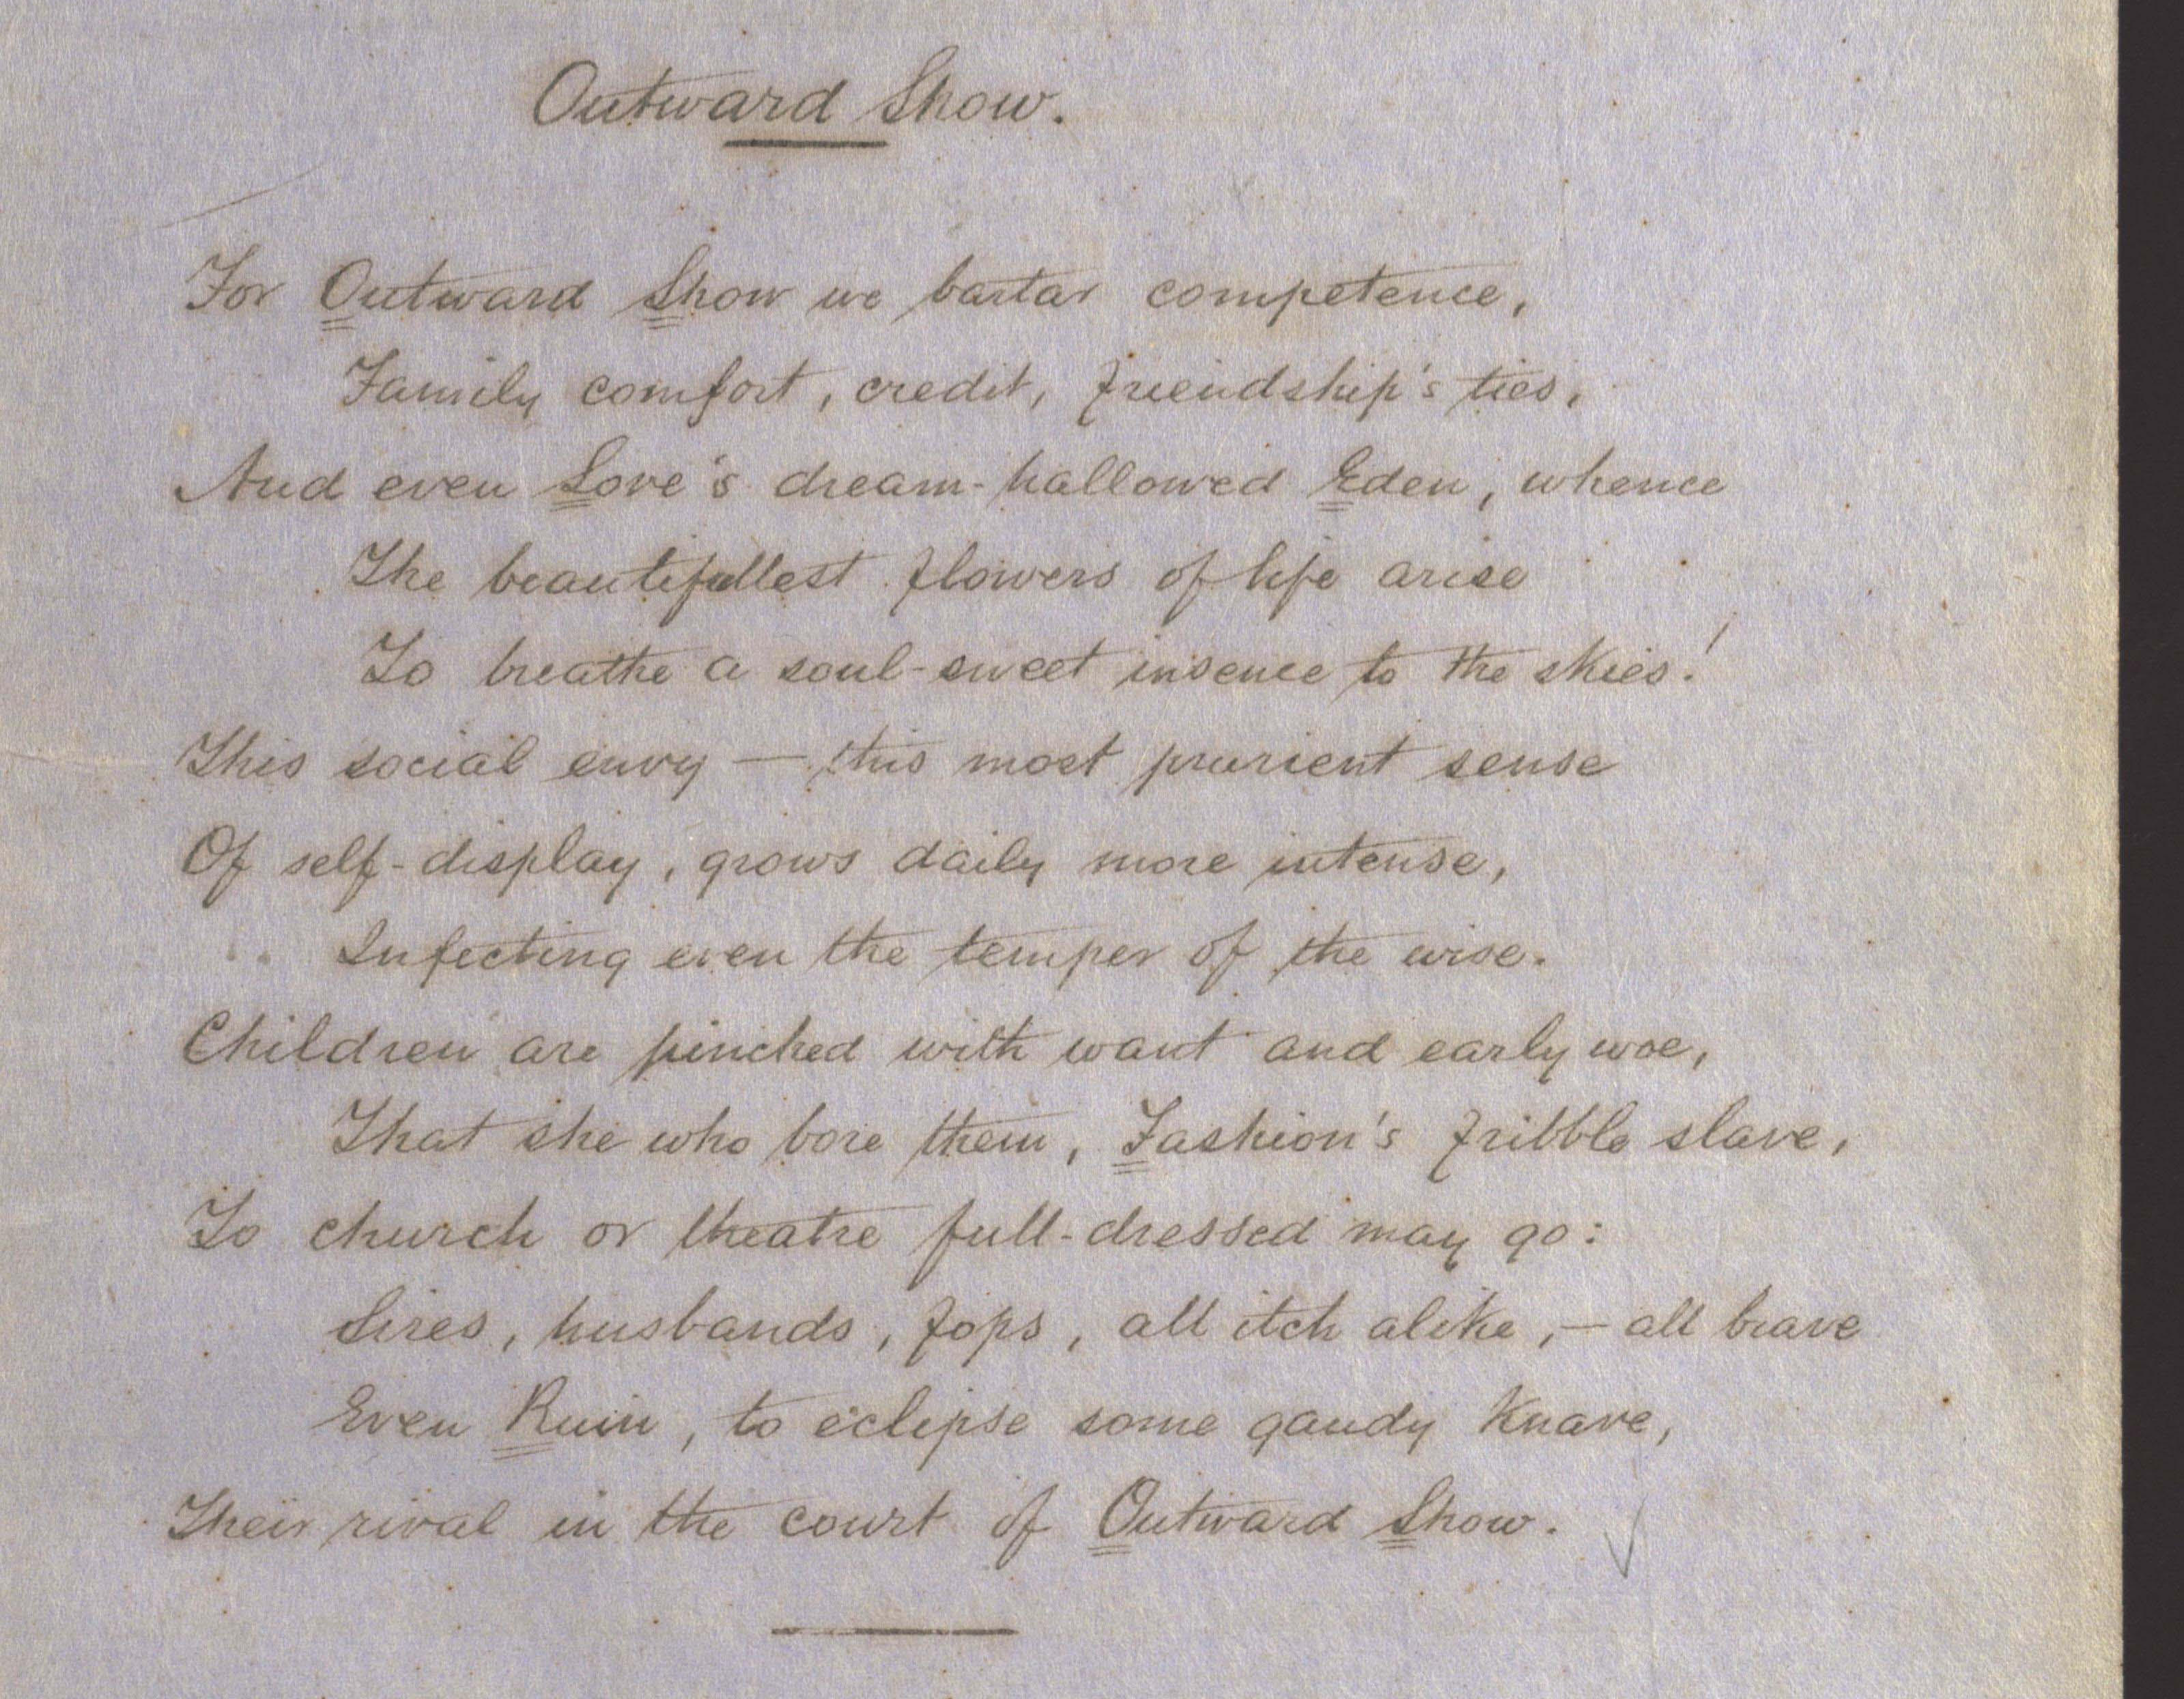 Outward Show.
For Outward Show we bartar competence,
Family comfort, credit, friendship's ties,
And even Love's dream-hallowed Eden, whence
The beautifullest flowers of life arise
To breathe a soul-sweet insence to the skies!
This social envy — this most prurient sense
Of self-display, grows daily more intense,
Infecting even the temper of the wise.
Children are pinched with want and early woe,
That she who bore them, Fashion's fribble slave,
To church or theatre full-dressed may go:
Sires, husbands, fops, all itch alike, — all brave
Even Ruin, to eclipse some gaudy Knave,
Their rival in the court of Outward Show.